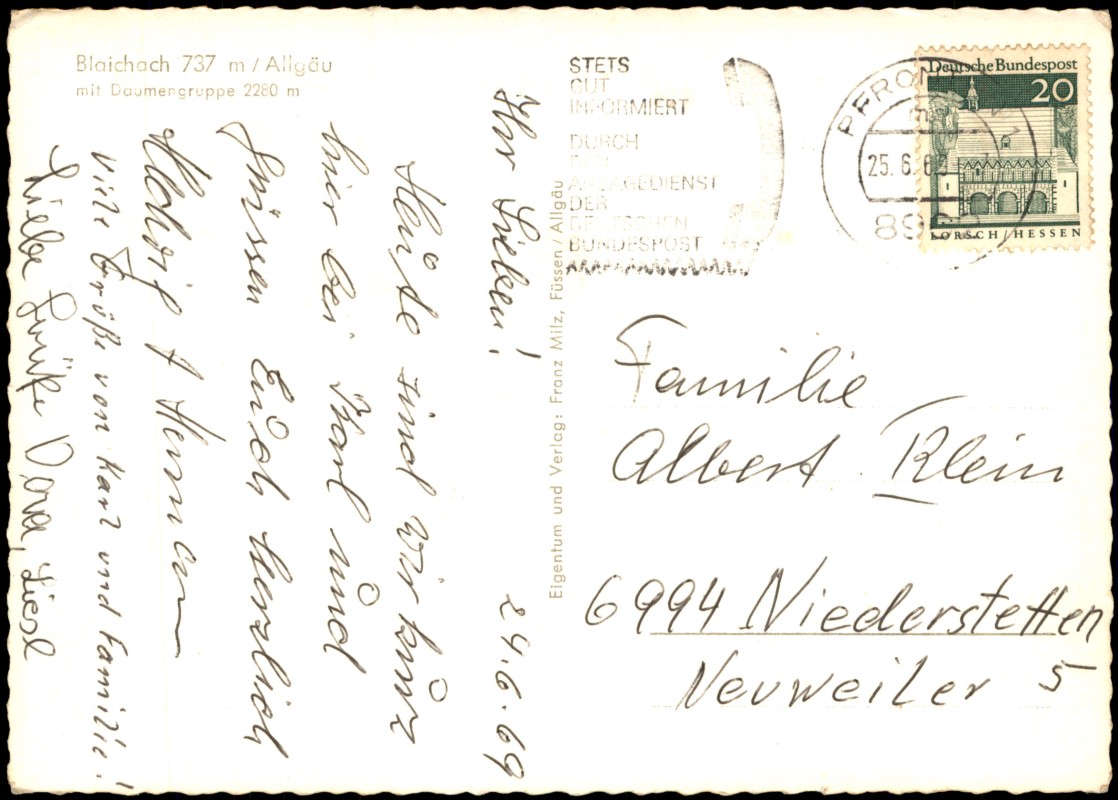 Blaichach 737 m / Allgäu
mit Daumengruppe 2280 m
Ihr Lieben! 24.6.69
Heute sind wir kurz
hier bei Karl und
Grüssen Euch herzlich
Hedwig + Hermann
Viele Grüße von Karl und Familie!
Liebe Grüße Dora, Liesl
Eigentum und Verlag: Franz Milz, Füssen/Allgäu
STETS
GUT
INFORMIERT
DURCH
DEN
ANSAGEDIENST
DER
DEUTSCHEN
BUNDESPOST
PFRONTEN 1
25.6.69
Deutsche Bundespost
20
LORSCH / HESSEN
Familie
Albert Klein
6994 Niederstetten
Neuweiler 5